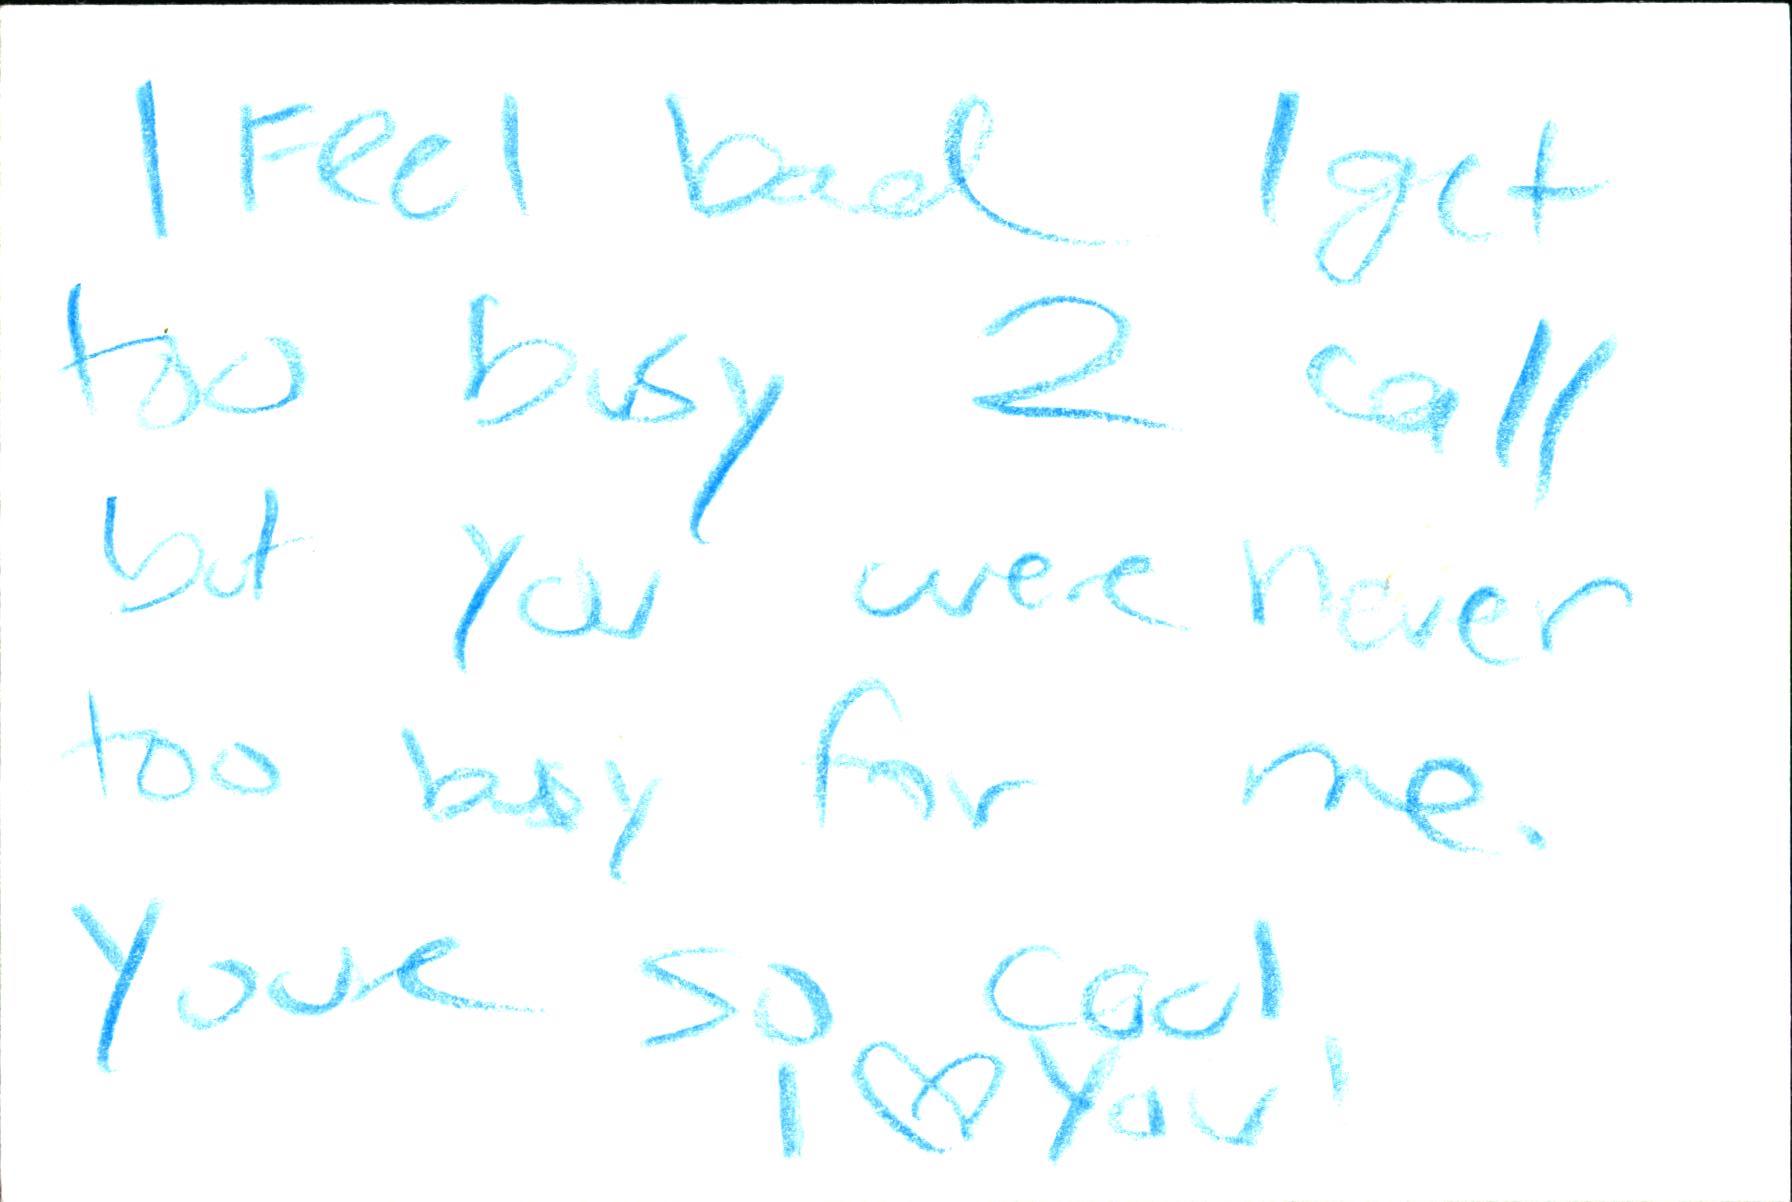 I Feel bad I get
too busy 2 call
but you were never
too busy for me.
Youre so cool
I ♡ You!